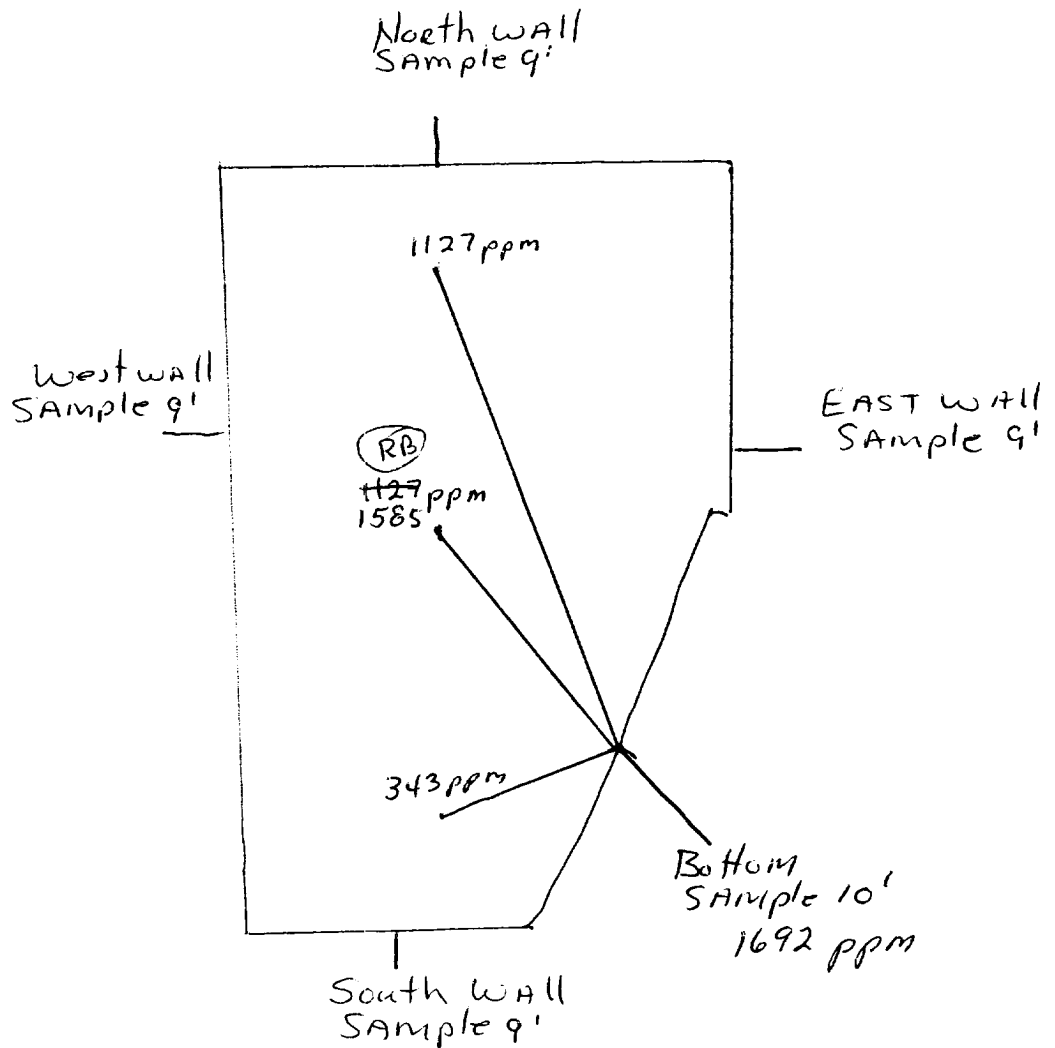 North WAll
SAmple 9'
1127 ppm
West wAll
SAmple 9'
EAST WAll
SAmple 9'
RB
1127 ppm
1585
343 ppm
Bottom
SAmple 10'
1692 ppm
South WAll
SAmple 9'